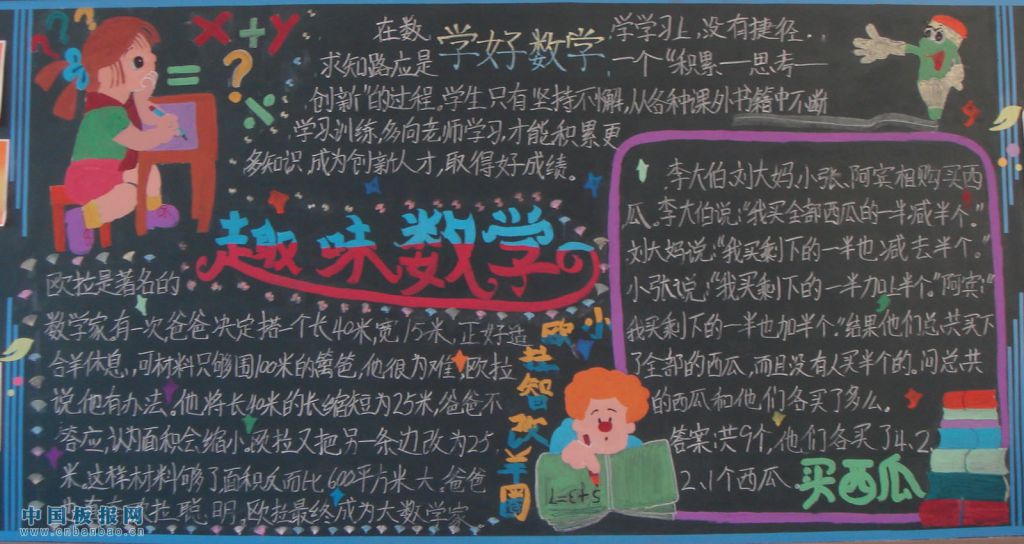 X+Y
=?
在数 学学习上,没有捷径.
学好数学
求知路应是 一个“积累—思考—
创新”的过程。学生只有坚持不懈,从各种课外书籍中不断
学习训练,多向老师学习,才能积累更
多知识,成为创新人才,取得好成绩。
趣味数学
欧拉是著名的
数学家,有一次爸爸决定搭一个长40米,宽15米,正好适
合羊休息,可材料只够围100米的篱笆,他很为难,欧拉
说他有办法。他将长40米的长缩短为25米,爸爸不
答应,认为面积会缩小。欧拉又把另一条边改为25
米,这样材料够了面积反而比600平方米大。爸爸
拉聪明。欧拉最终成为大数学家
小欧拉智改羊圈
李大伯、刘大妈、小张、阿宾相购买西
瓜。李大伯说:“我买全部西瓜的一半减半个。”
刘大妈说:“我买剩下的一半也减去半个。”
小张说:“我买剩下的一半加上半个。”阿宾:“
我买剩下的一半也加半个。”结果他们总共买下
了全部的西瓜,而且没有人买半个的。问总共
的西瓜和他们各买了多么。
答案:共9个,他们各买了4.2
2.1个西瓜
买西瓜
5+3=?
中国板报网
www.cnbanbao.cn